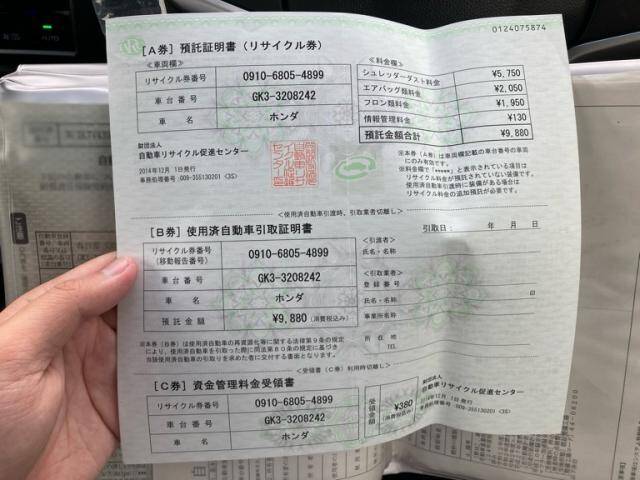 0124075874
[A券] 預託証明書(リサイクル券)
<車両欄>
リサイクル券番号 0910-6805-4899
車台番号 GK3-3208242
車名 ホンダ
<料金欄>
シュレッダーダスト料金 ¥5,750
エアバッグ類料金 ¥2,050
フロン類料金 ¥1,950
情報管理料金 ¥130
預託金額合計 ¥9,880
財団法人
自動車リサイクル促進センター
2014年12月 1日発行
事務処理番号:009-355130201 <3S>
※本券(A券)は車両欄記載の車台番号の車両
にのみ有効です。
※料金欄で「*****」と表示されている項目は
リサイクル料金が預託されていない装備です。
使用済自動車引渡時に装備がある場合は
リサイクル料金の追加預託が必要です。
<使用済自動車引渡時、引取業者切離し>
[B券] 使用済自動車引取証明書
引取日: 年 月 日
リサイクル券番号
(移動報告番号) 0910-6805-4899
車台番号 GK3-3208242
車名 ホンダ
預託金額 ¥9,880 (消費税込み)
<引渡者>
氏名・名称
<引取業者>
登録番号
氏名・名称 印
事業所名
所在地
TEL
※本券(B券)は使用済自動車の再資源化等に関する法律第9条の規定
により、使用済自動車を引取った際に同法第80条の規定に基づき
当該使用済自動車の引取りを求めた者に交付する書面となります。
<受領書(C券)利用時切離し>
[C券] 資金管理料金受領書
リサイクル券番号 0910-6805-4899
車台番号 GK3-3208242
車名 ホンダ
受領金額 ¥380
(消費税込み)
財団法人
自動車リサイクル促進センター
2014年12月 1日発行
事務処理番号:009-355130201 <3S>